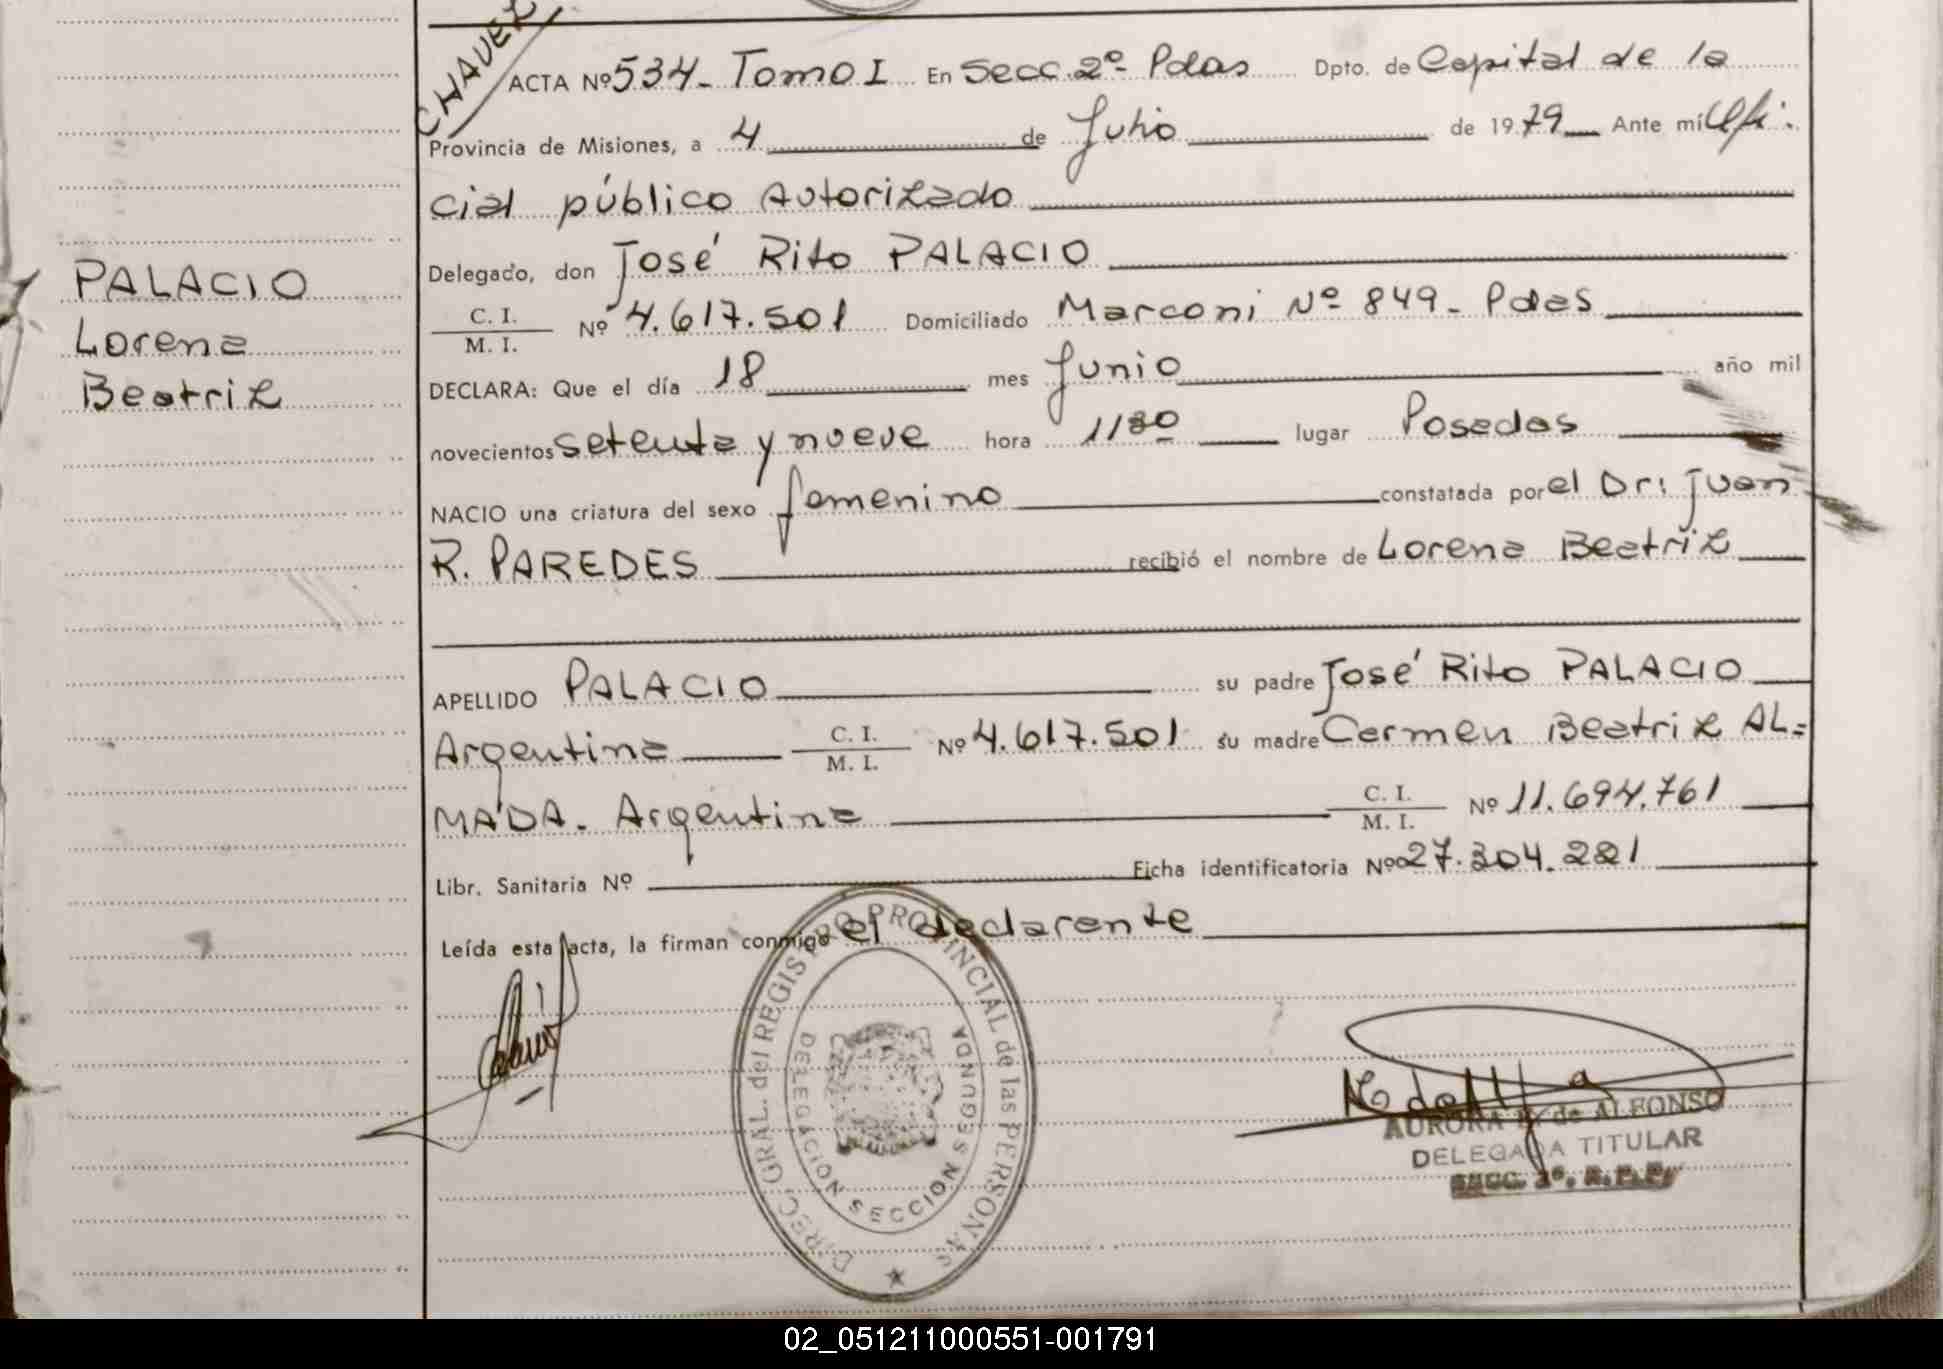 CHAVEZ
ACTA Nº 534- Tomo I En Secc. 2º- Pdas Dpto. de Capital de la
Provincia de Misiones, a 4 de Julio de 1979 Ante mí Ofi-
cial público Autorizado
PALACIO
Lorena
Beatriz
Delegado, don José Rito PALACIO
C. I.
M. I. Nº 4.617.501 Domiciliado Marconi Nº 849- Pdas
DECLARA: Que el día 18 mes Junio año mil
novecientos setenta y nueve hora 1130 lugar Posadas
NACIO una criatura del sexo femenino constatada por el Dr: Juan
R. PAREDES recibió el nombre de Lorena Beatriz
APELLIDO PALACIO su padre José Rito PALACIO
Argentina C. I. M. I. Nº 4.617.501 su madre Carmen Beatriz AL=
MADA. Argentina C. I. M. I. Nº 11.694.761
Libr. Sanitaria Nº Ficha identificatoria Nº 27.304.221
Leída esta acta, la firman conmigo el declarante
DIREC. GRAL. del REGISTRO PROVINCIAL de las PERSONAS
DELEGACION SECCION SEGUNDA
AURORA de ALFONSO
DELEGADA TITULAR
SECC. 2º. R.P.P.
02_051211000551-001791